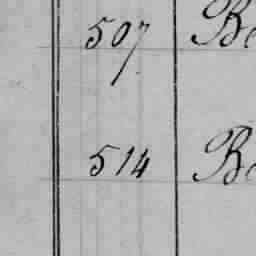 507 Be
514 Be